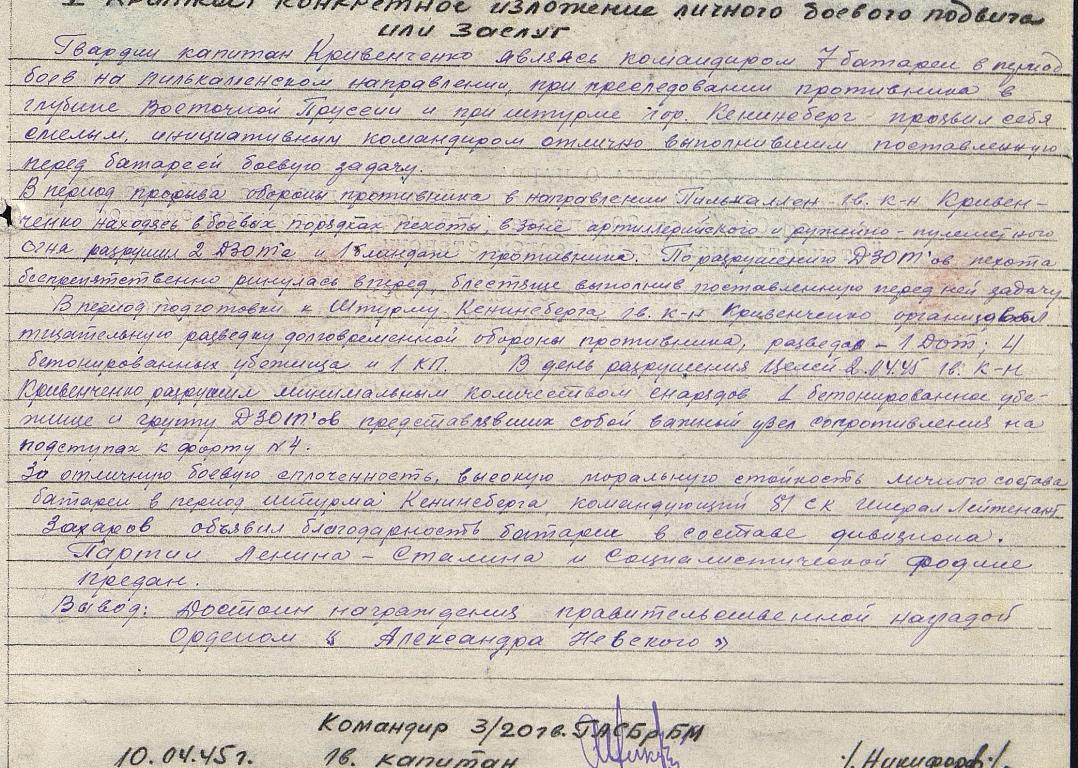 I Краткое, конкретное изложение личного боевого подвига
или заслуг
Гвардии капитан Кривенченко являясь командиром 7 батареи в период
боев на Пилькаленском направлении, при преследовании противника в
глубине Восточной Пруссии и при штурме гор. Кенинсберг - проявил себя
смелым, инициативным командиром отлично выполнившим поставленную
перед батареей боевую задачу.
В период прорыва обороны противника в направлении Пилькаллен - гв. к-н Кривен-
ченко находясь в боевых порядках пехоты, в зоне артиллерийского и ружейно-пулеметного
огня разрушил 2 ДЗОТ'а и 1 блиндаж противника. По разрушению ДЗОТ'ов пехота
беспрепятственно ринулась вперед, блестяще выполнив поставленную перед ней задачу
В период подготовки к штурму Кенинсберга гв. к-н Кривенченко организовал
тщательную разведку долговременной обороны противника, разведал - 1 Дот; 4
бетонированных убежища и 1 КП. В день разрушения Целей 2.04.45 гв. к-н
Кривенченко разрушил минимальным количеством снарядов 1 бетонированное убе-
жище и группу ДЗОТ'ов представлявших собой важный узел сопротивления на
подступах к форту №4.
За отличную боевую сплоченность, высокую моральную стойкость личного состава
батареи в период штурма Кенинсберга, командующий 81 СК Генерал Лейтенант
Захаров объявил благодарность батареи в составе дивизиона.
Партии Ленина - Сталина и Социалистической Родине
предан.
Вывод: Достоин награждения правительственной наградой
Орденом « Александра Невского »
Командир 3/20 гв. ПАСБр БМ
10.04.45г. гв. капитан /.Никифоров./